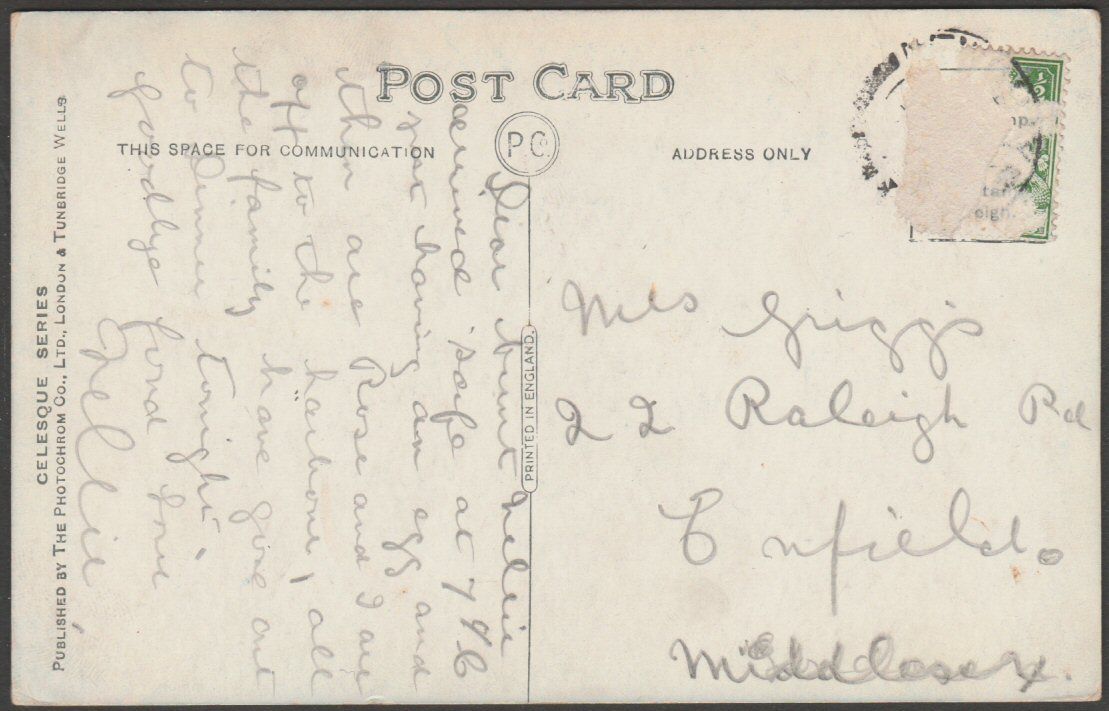 POST CARD
THIS SPACE FOR COMMUNICATION
P.C.
ADDRESS ONLY
1/2
Dear Aunt Nellie
arrived safe at 7
just having an egg and
then are Rose and I are
off to the harbour, all
the family have gone out
to Dinner tonight
goodbye fond love
Nellie
Mrs Griggs
22 Raleigh Rd
Enfield.
Middlesex.
PRINTED IN ENGLAND.
CELESQUE SERIES
PUBLISHED BY THE PHOTOCHROM CO., LTD., LONDON & TUNBRIDGE WELLS